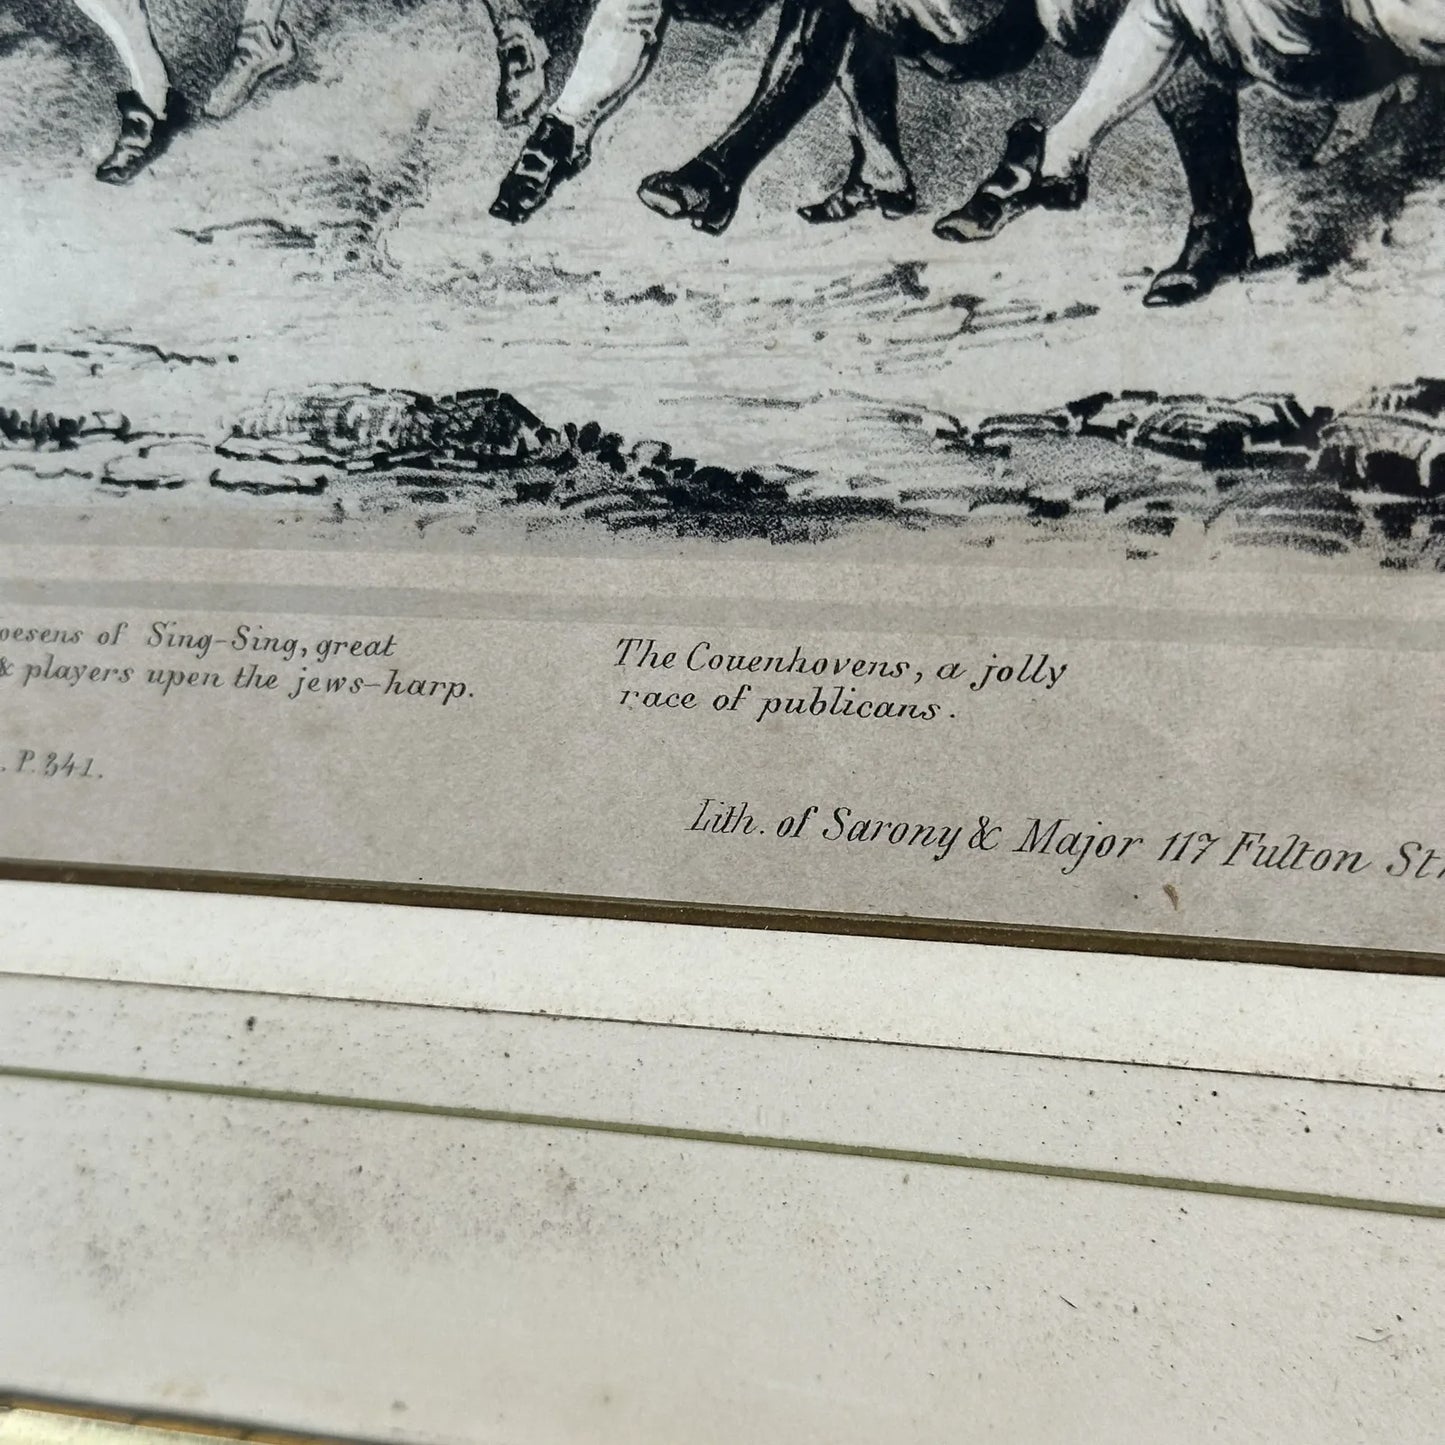 of Sing-Sing, great
& players upen the jews-harp.
P. 341.
The Couenhovens, a jolly
race of publicans.
Lith. of Sarony & Major 117 Fulton